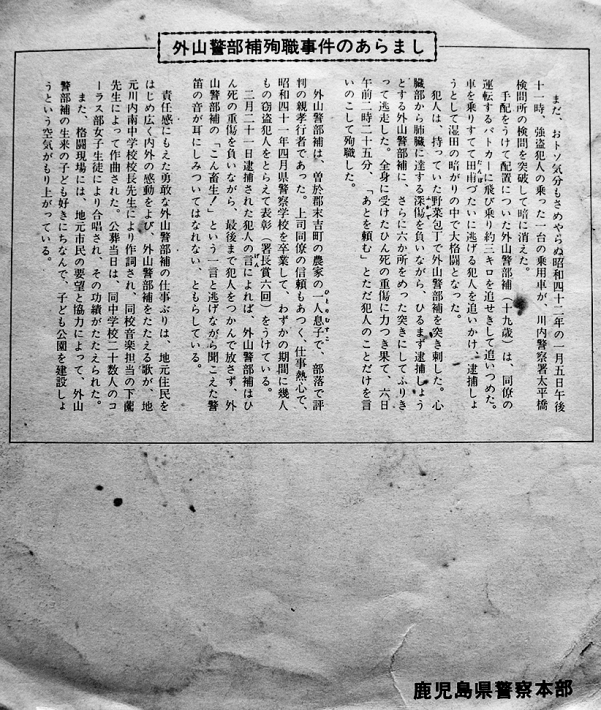 外山警部補殉職事件のあらまし
まだ、おトソ気分もさめやらぬ昭和四十二年の一月五日午後
十一時、強盗犯人の乗った一台の乗用車が、川内警察署太平橋
検問所の検問を突破して暗に消えた。
手配をうけて配置についた外山警部補（十九歳）は、同僚の
運転するパトカーに飛び乗り約三キロを追せきして追いつめた。
車を乗りすてて田甫づたいに逃げる犯人を追いかけ、逮捕しよ
うとして湿田の暗がりの中で大格闘となった。
犯人は、持っていた野菜包丁で外山警部補を突き刺した。心
臓部から肺臓に達する深傷を負いながら、ひるまず逮捕しよう
とする外山警部補に、さらに六か所をめった突きにしてふりき
って逃走した。全身に受けたひん死の重傷に力つき果て、六日
午前二時二十五分、「あとを頼む」とただ犯人のことだけを言
いのこして殉職した。
外山警部補は、曽於郡末吉町の農家の一人息子で、部落で評
判の親孝行者であった。上司同僚の信頼もあつく、仕事熱心で、
昭和四十一年四月県警察学校を卒業して、わずかの期間に幾人
もの窃盗犯人をとらえて表彰（署長賞六回）をうけている。
三月二十一日逮捕された犯人の言によれば、外山警部補はひ
ん死の重傷を負いながら、最後まで犯人をつかんで放さず、外
山警部補の「こん畜生！」という一言と逃げながら聞こえた警
笛の音が耳にしみついてはなれない、ともらしている。
責任感にもえた勇敢な外山警部補の仕事ぶりは、地元住民を
はじめ広く内外の感動をよび、外山警部補をたたえる歌が、地
元川内南中学校校長先生により作詞され、同校音楽担当の下薗
先生によって作曲された。公葬当日は、同中学校二十数人のコ
ーラス部女子生徒により合唱され、その功績がたたえられた。
また、格闘現場には、地元市民の要望と協力によって、外山
警部補の生来の子ども好きにちなんで、子ども公園を建設しょ
うという空気がもり上がっている。
鹿児島県警察本部